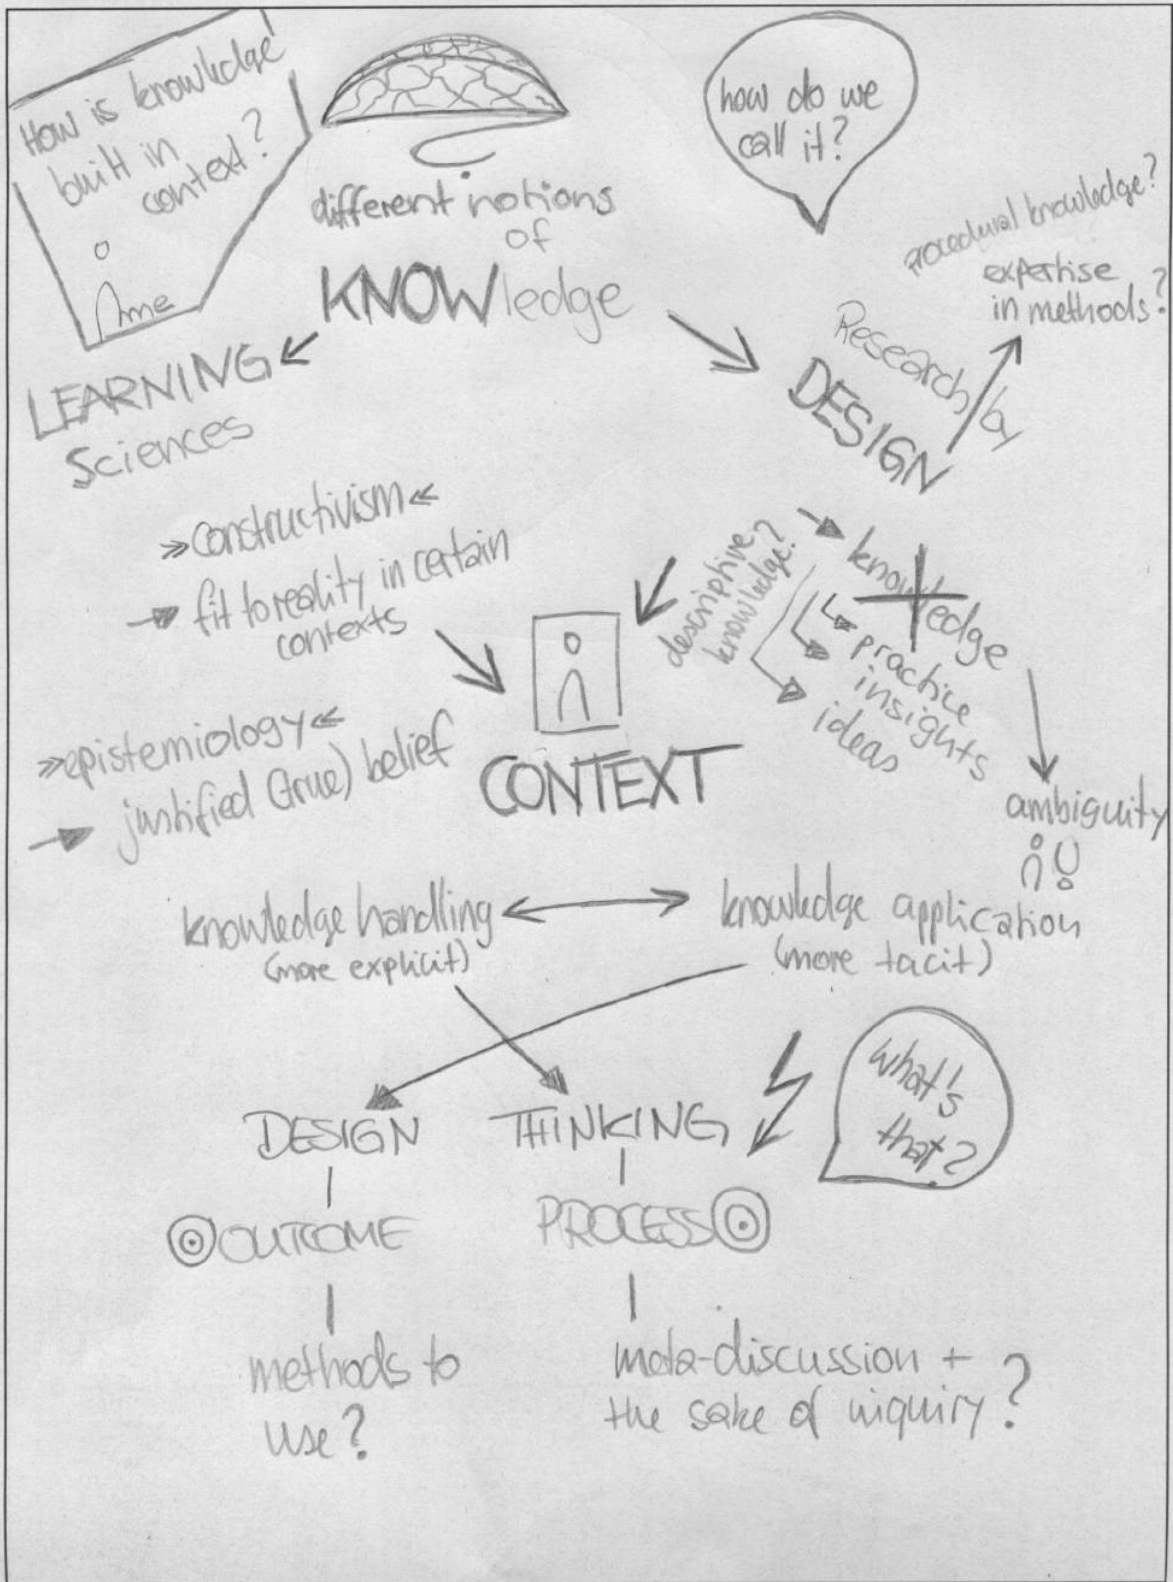 How is knowledge
built in
context?
me
different notions
of
KNOWledge
how do we
call it?
procedural knowledge?
expertise
in methods?
Research by
DESIGN
LEARNING
Sciences
constructivism
fit to reality in certain
contexts
epistemiology
justified (true) belief
CONTEXT
descriptive
knowledge?
knowledge
practice
insights
ideas
ambiguity
knowledge handling
(more explicit)
knowledge application
(more tacit)
what's
that?
DESIGN THINKING
OUTCOME
PROCESS
methods to
use?
meta-discussion +
the sake of inquiry?